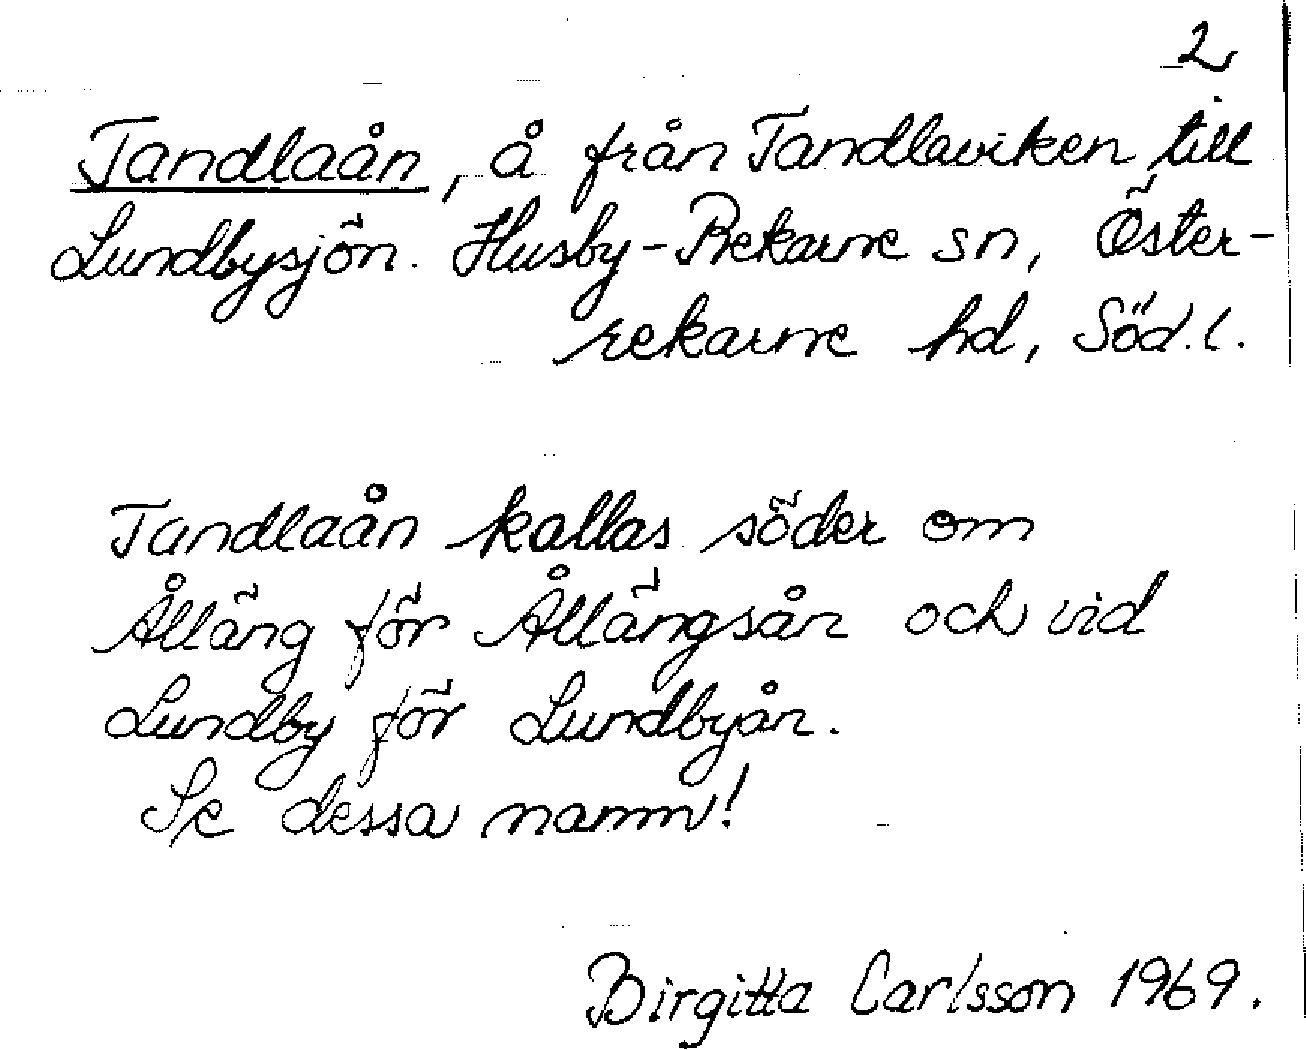 2
Tandlaån, å från Tandlaviken till
Lundbysjön. Husby-Rekarne sn, Öster-
rekarne hd, Söd. l.
Tandlaån kallas söder om
Ålläng för Ållängsån och vid
Lundby för Lundbyån.
Se dessa namn!
Birgitta Carlsson 1969.